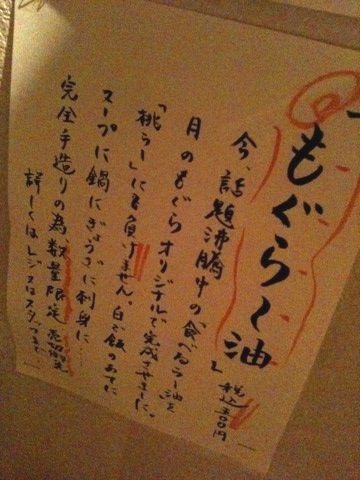 もぐらー油
税込五〇〇円
今、話題沸騰中の「食べるラー油」を
月のもぐらオリジナルで完成させました。
「桃ラー」にも負けません。白ご飯のあてに
スープに鍋にぎょうざに刺身に…
完全手造りの為数量限定
詳しくはレジ又はスタッフまで